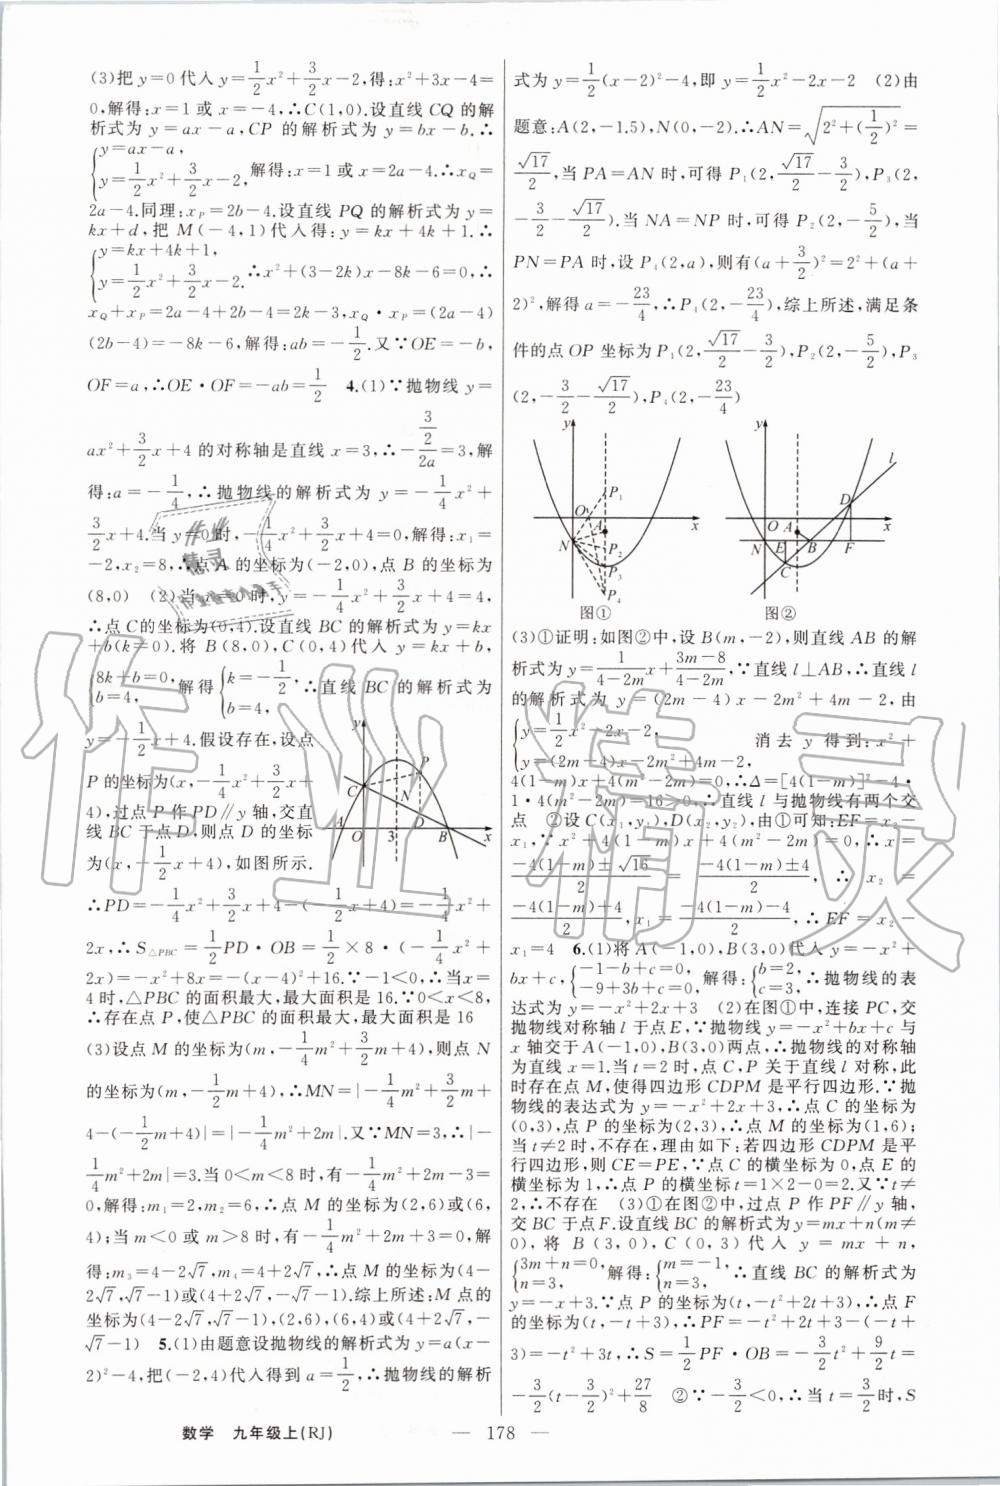 (3)把 y=0 代入 y=1/2x²+3/2x-2,得:x²+3x-4=
0,解得:x=1 或 x=-4,∴C(1,0).设直线 CQ 的解
析式为 y=ax-a,CP 的解析式为 y=bx-b.∴
{y=ax-a,
y=1/2x²+3/2x-2, 解得:x=1 或 x=2a-4.∴x_Q=
2a-4.同理:x_P=2b-4.设直线 PQ 的解析式为 y=
kx+d,把 M(-4,1)代入得:y=kx+4k+1.∴
{y=kx+4k+1,
y=1/2x²+3/2x-2. ∴x²+(3-2k)x-8k-6=0,∴
x_Q+x_P=2a-4+2b-4=2k-3,x_Q·x_P=(2a-4)
(2b-4)=-8k-6,解得:ab=-1/2.又∵OE=-b,
OF=a,∴OE·OF=-ab=1/2 4.(1)∵抛物线 y=
ax²+3/2x+4 的对称轴是直线 x=3,∴-(3/2)/(2a)=3,解
得:a=-1/4,∴抛物线的解析式为 y=-1/4x²+
3/2x+4.当 y=0 时,-1/4x²+3/2x+4=0,解得:x₁=
-2,x₂=8,∴点 A 的坐标为(-2,0),点 B 的坐标为
(8,0) (2)当 x=0 时,y=-1/4x²+3/2x+4=4,
∴点 C 的坐标为(0,4).设直线 BC 的解析式为 y=kx
+b(k≠0).将 B(8,0),C(0,4)代入 y=kx+b,
{8k+b=0,
b=4, 解得 {k=-1/2,
b=4, ∴直线 BC 的解析式为
y=-1/2x+4.假设存在,设点
P 的坐标为(x,-1/4x²+3/2x+
4),过点 P 作 PD∥y 轴,交直
线 BC 于点 D,则点 D 的坐标
为(x,-1/2x+4),如图所示.
y
C
P
N
A
O
3
D
B
x
∴PD=-1/4x²+3/2x+4-(-1/2x+4)=-1/4x²+
2x,∴S△PBC=1/2PD·OB=1/2×8·(-1/4x²+
2x)=-x²+8x=-(x-4)²+16.∵-1<0,∴当 x=
4 时,△PBC 的面积最大,最大面积是 16.∵0<x<8,
∴存在点 P,使△PBC 的面积最大,最大面积是 16
(3)设点 M 的坐标为(m,-1/4m²+3/2m+4),则点 N
的坐标为(m,-1/2m+4),∴MN=|-1/4m²+3/2m+
4-(-1/2m+4)|=|-1/4m²+2m|.又∵MN=3,∴|-
1/4m²+2m|=3.当 0<m<8 时,有-1/4m²+2m-3=
0,解得:m₁=2,m₂=6,∴点 M 的坐标为(2,6)或(6,
4);当 m<0 或 m>8 时,有-1/4m²+2m+3=0,解
得:m₃=4-2√7,m₄=4+2√7,∴点 M 的坐标为(4-
2√7,√7-1)或(4+2√7,-√7-1).综上所述:M 点的
坐标为(4-2√7,√7-1),(2,6),(6,4)或(4+2√7,-
√7-1) 5.(1)由题意设抛物线的解析式为 y=a(x-
2)²-4,把(-2,4)代入得到 a=1/2,∴抛物线的解析
式为 y=1/2(x-2)²-4,即 y=1/2x²-2x-2 (2)由
题意:A(2,-1.5),N(0,-2).∴AN=√(2²+(1/2)²)=
√17/2,当 PA=AN 时,可得 P₁(2,√17/2-3/2),P₃(2,
-3/2-√17/2).当 NA=NP 时,可得 P₂(2,-5/2),当
PN=PA 时,设 P₄(2,a),则有(a+3/2)²=2²+(a+
2)²,解得 a=-23/4,∴P₄(2,-23/4),综上所述,满足条
件的点 OP 坐标为 P₁(2,√17/2-3/2),P₂(2,-5/2),P₃
(2,-3/2-√17/2),P₄(2,-23/4)
y
P₁
O
A
x
N
P₂
P₃
P₄
图①
y
l
D
O
A
x
N
E
B
F
C
图②
(3)①证明:如图②中,设 B(m,-2),则直线 AB 的解
析式为 y=1/(4-2m)x+(3m-8)/(4-2m),∵直线 l⊥AB,∴直线 l
的解析式为 y=(2m-4)x-2m²+4m-2,由
{y=1/2x²-2x-2,
y=(2m-4)x-2m²+4m-2, 消去 y 得到:x²+
4(1-m)x+4(m²-2m)=0,∴Δ=[4(1-m)]²-4·
1·4(m²-2m)=16>0,∴直线 l 与抛物线有两个交
点 ②设 C(x₁,y₁),D(x₂,y₂),由①可知:EF=x₂-
x₁,∵x²+4(1-m)x+4(m²-2m)=0,∴x=
(-4(1-m)±√16)/2=(-4(1-m)±4)/2,∴x₂=
(-4(1-m)+4)/2,x₁=(-4(1-m)-4)/2,∴EF=x₂-
x₁=4 6.(1)将 A(-1,0),B(3,0)代入 y=-x²+
bx+c,{-1-b+c=0,
-9+3b+c=0, 解得:{b=2,
c=3, ∴抛物线的表
达式为 y=-x²+2x+3 (2)在图①中,连接 PC,交
抛物线对称轴 l 于点 E,∵抛物线 y=-x²+bx+c 与
x 轴交于 A(-1,0),B(3,0)两点,∴抛物线的对称轴
为直线 x=1.当 t=2 时,点 C,P 关于直线 l 对称,此
时存在点 M,使得四边形 CDPM 是平行四边形.∵抛
物线的表达式为 y=-x²+2x+3,∴点 C 的坐标为
(0,3),点 P 的坐标为(2,3),∴点 M 的坐标为(1,6);
当 t≠2 时,不存在,理由如下:若四边形 CDPM 是平
行四边形,则 CE=PE,∵点 C 的横坐标为 0,点 E 的
横坐标为 1,∴点 P 的横坐标 t=1×2-0=2.又∵t≠
2,∴不存在 (3)①在图②中,过点 P 作 PF∥y 轴,
交 BC 于点 F.设直线 BC 的解析式为 y=mx+n(m≠
0),将 B(3,0),C(0,3)代入 y=mx+n,
{3m+n=0,
n=3, 解得:{m=-1,
n=3, ∴直线 BC 的解析式为
y=-x+3.∵点 P 的坐标为(t,-t²+2t+3),∴点 F
的坐标为(t,-t+3),∴PF=-t²+2t+3-(-t+
3)=-t²+3t,∴S=1/2PF·OB=-3/2t²+9/2t=
-3/2(t-3/2)²+27/8 ②∵-3/2<0,∴当 t=3/2时,S
作业精灵
数学 九年级上(RJ)
— 178 —